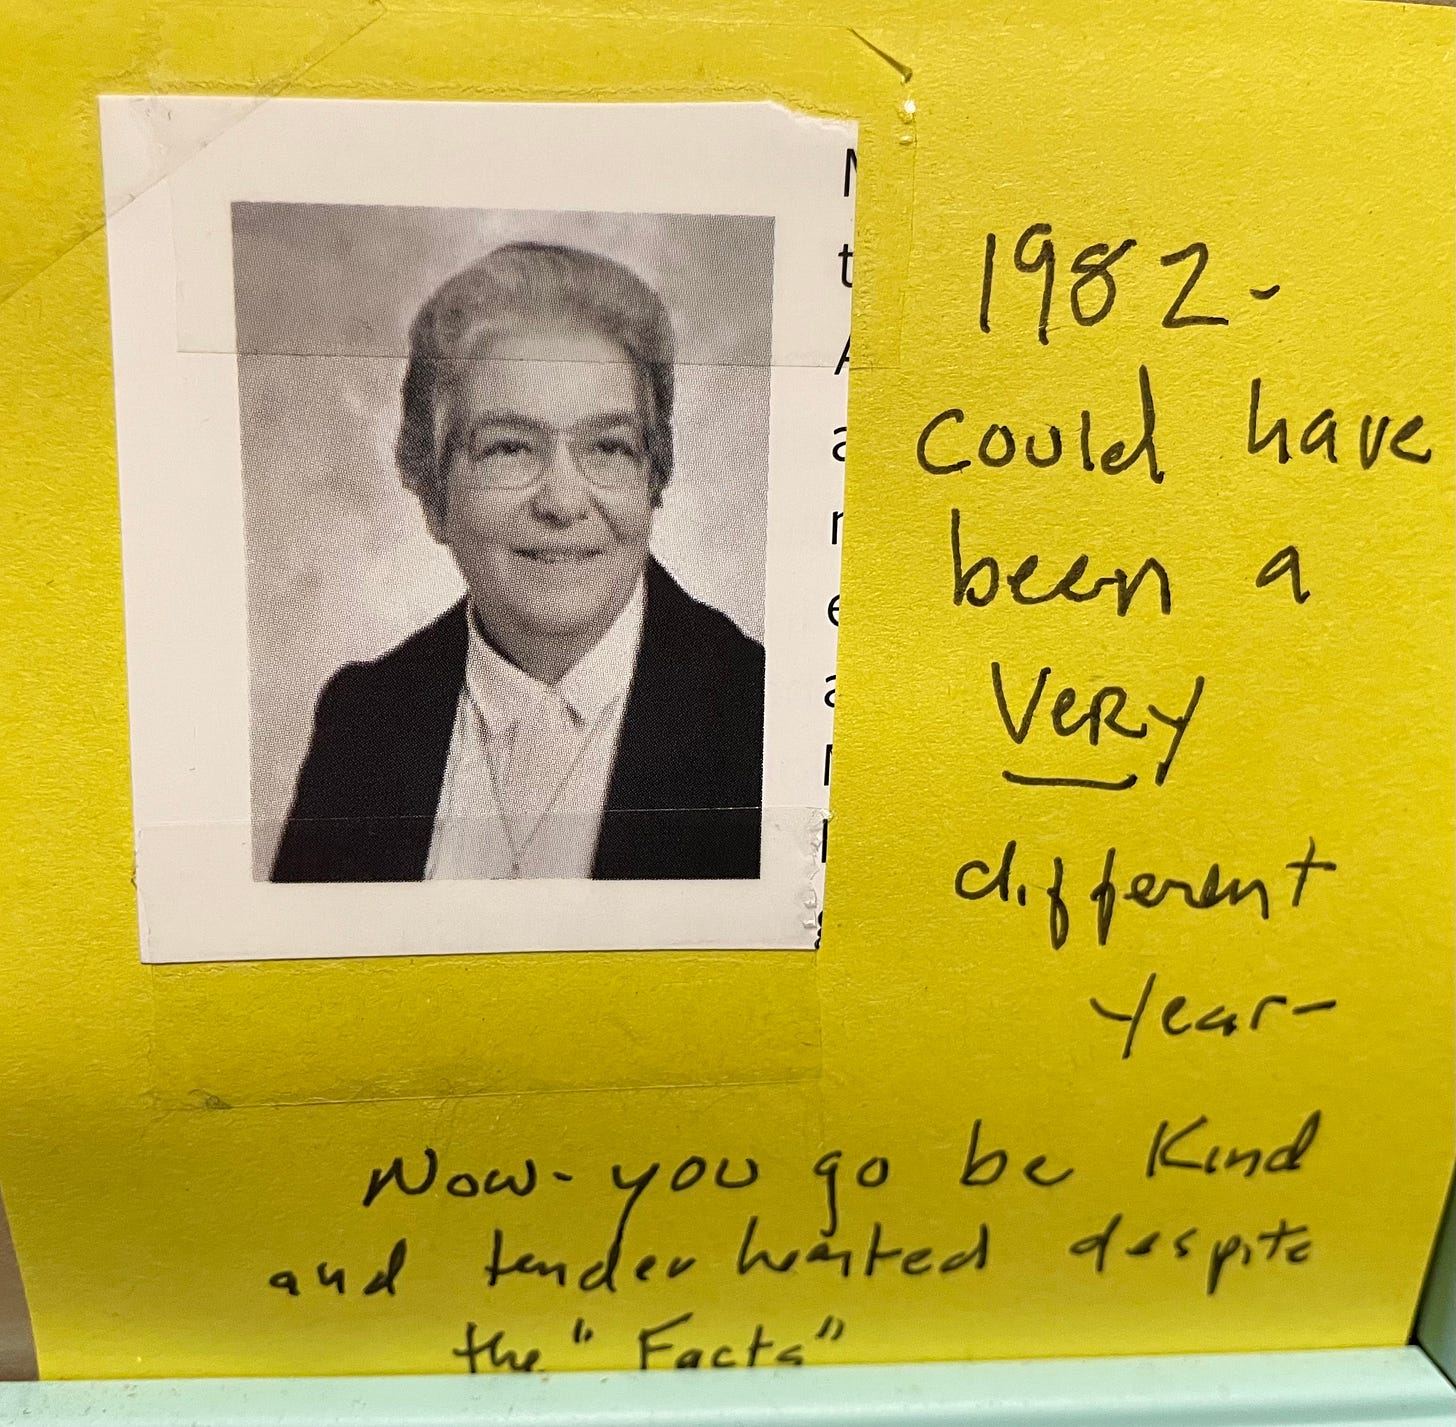 1982-
could have
been a
VERY
different
year-
Now- you go be Kind
and tender hearted despite
the "Facts"
N
t
A
a
r
e
a